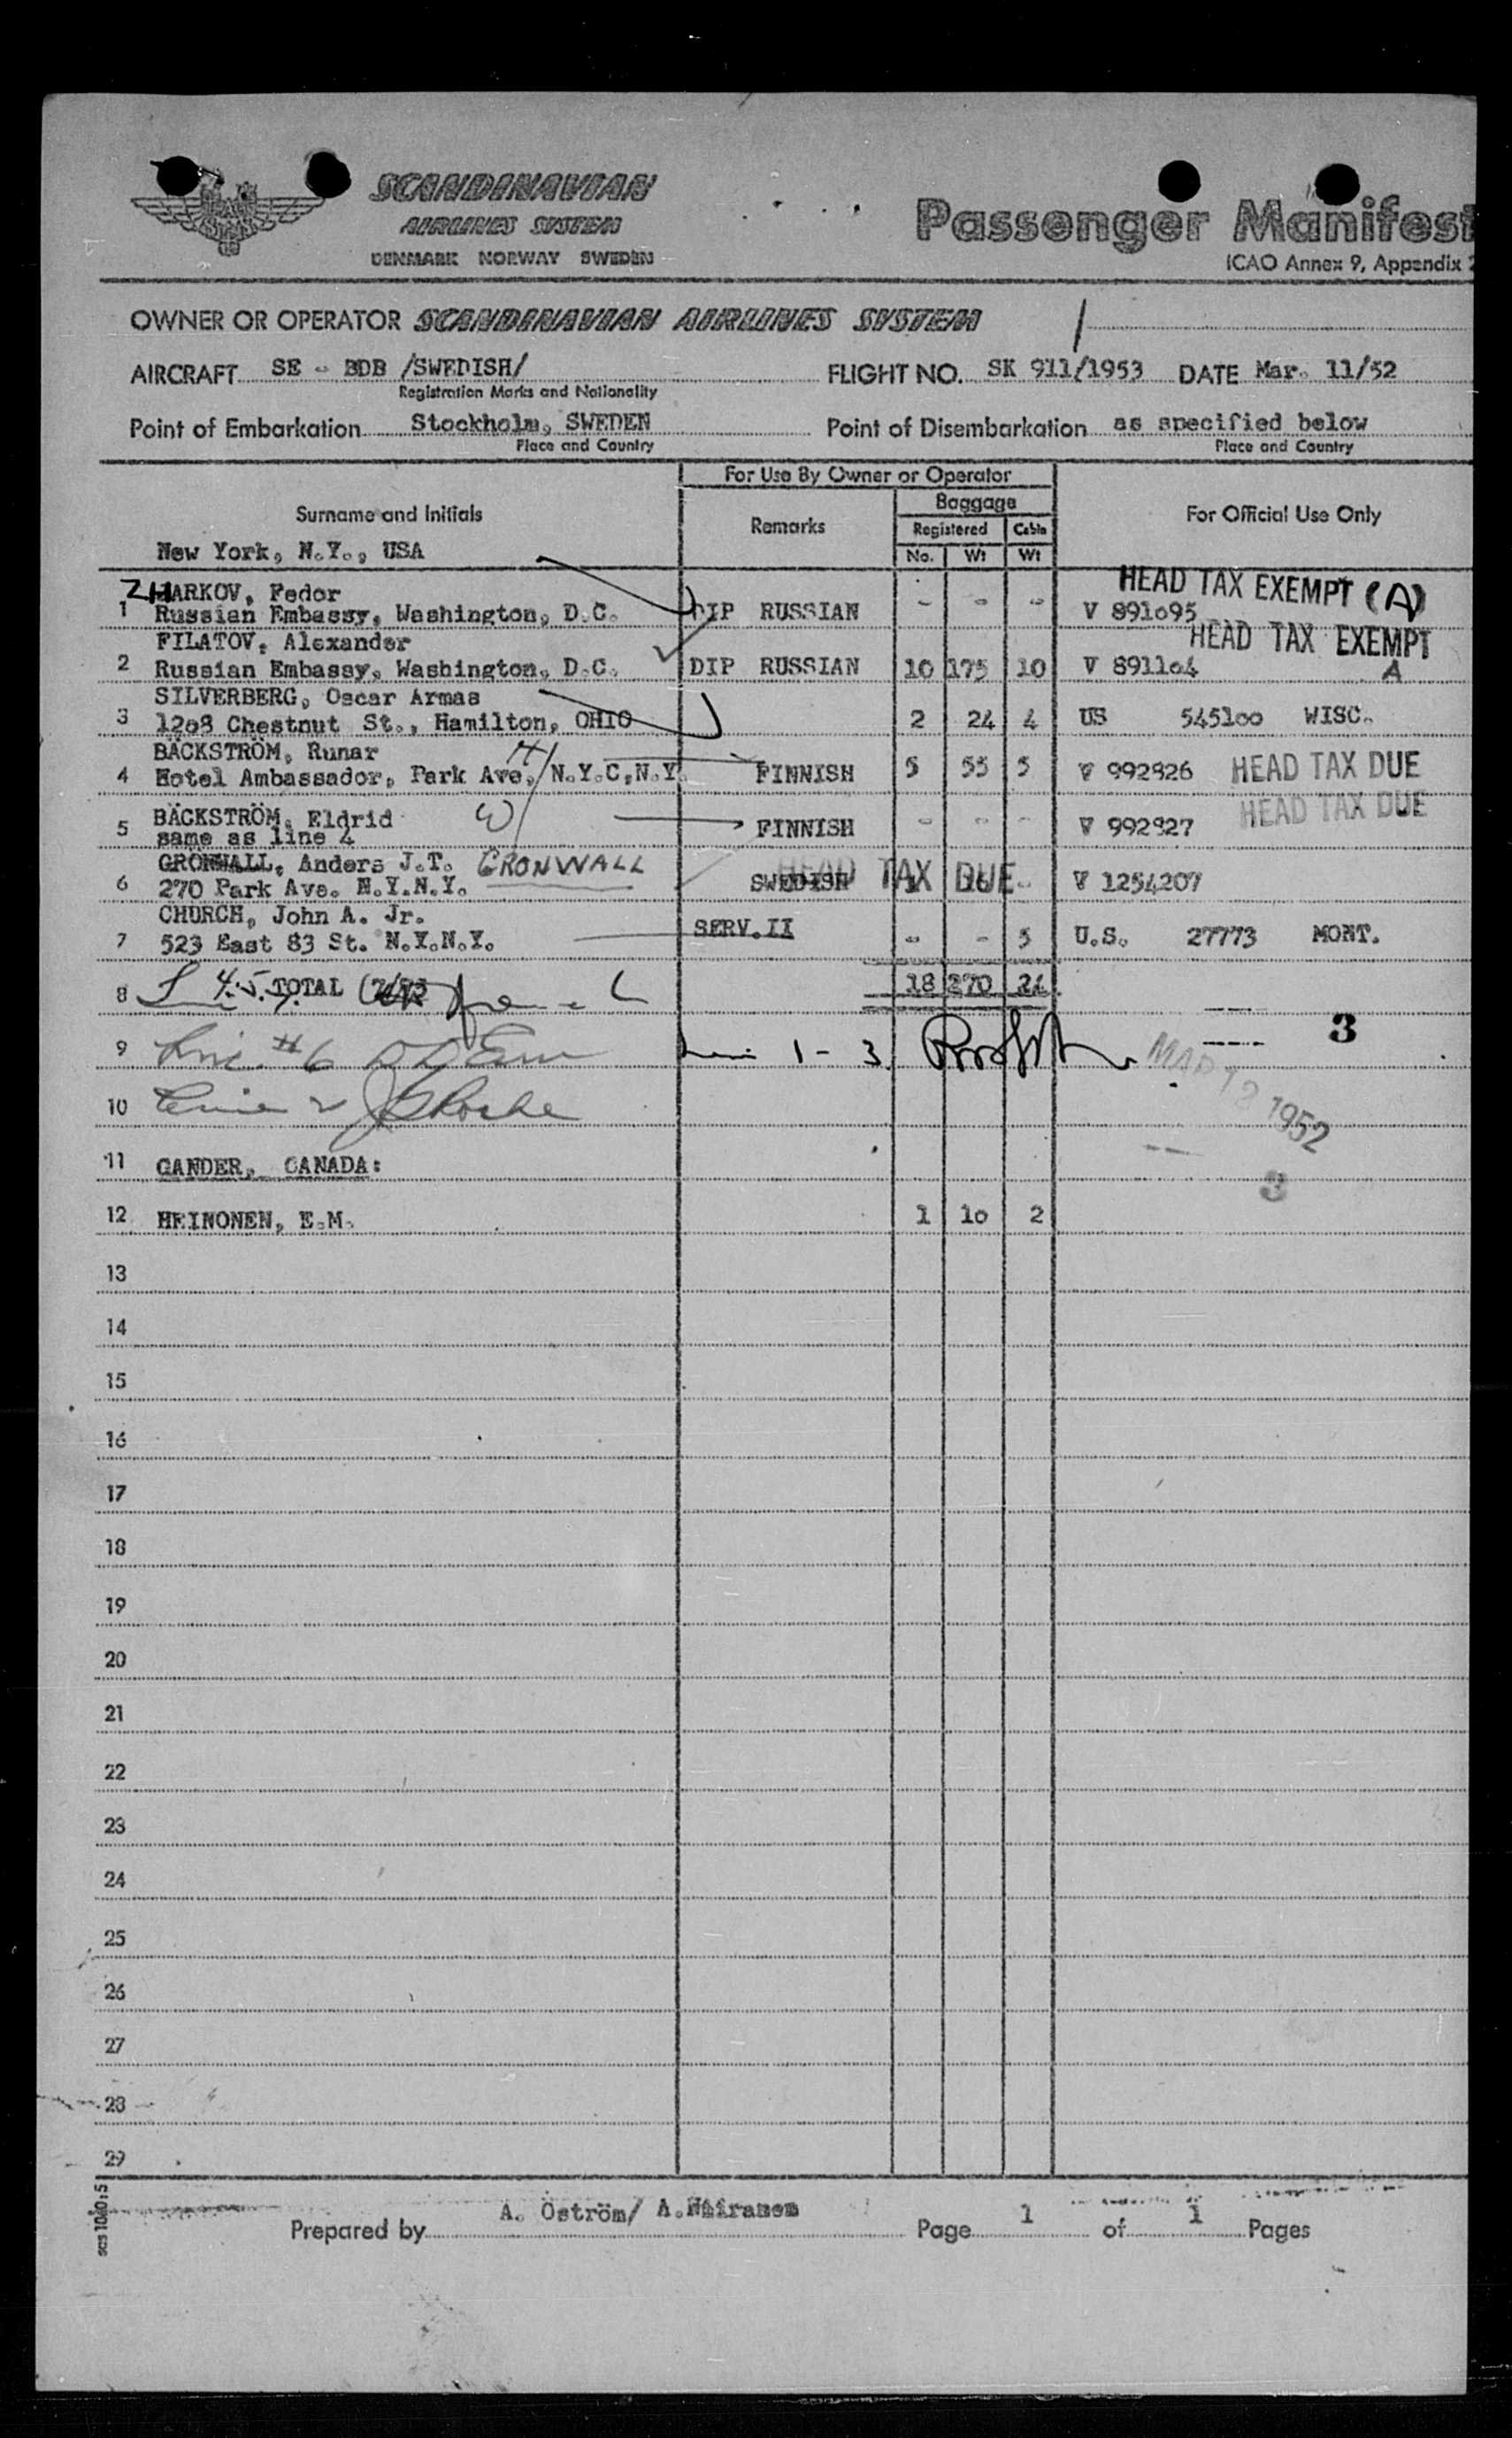 SCANDINAVIAN
AIRLINES SYSTEM
DENMARK NORWAY SWEDEN
Passenger Manifest
ICAO Annex 9, Appendix 2
OWNER OR OPERATOR SCANDINAVIAN AIRLINES SYSTEM
AIRCRAFT SE - BDB /SWEDISH/ FLIGHT NO. SK 911/1953 DATE Mar. 11/52
Registration Marks and Nationality
Point of Embarkation Stockholm, SWEDEN Point of Disembarkation as specified below
Place and Country Place and Country
For Use By Owner or Operator
Surname and Initials Remarks Baggage For Official Use Only
Registered Cabin
No. Wt Wt
New York, N.Y., USA
ZHARKOV, Fedor HEAD TAX EXEMPT (A)
1 Russian Embassy, Washington, D.C. DIP RUSSIAN - - - V 891095
FILATOV, Alexander HEAD TAX EXEMPT
2 Russian Embassy, Washington, D.C. DIP RUSSIAN 10 175 10 V 891104 A
SILVERBERG, Oscar Armas
3 1208 Chestnut St., Hamilton, OHIO 2 24 4 US 545100 WISC.
BÄCKSTRÖM, Runar H
4 Hotel Ambassador, Park Ave, N.Y.C,N.Y. FINNISH 5 55 5 V 992826 HEAD TAX DUE
BÄCKSTRÖM, Eldrid W HEAD TAX DUE
5 same as line 4 FINNISH - - - V 992827
GRÖNWALL, Anders J.T. GRONWALL HEAD TAX DUE
6 270 Park Ave. N.Y.N.Y. SWEDISH 1 16 - V 1254207
CHURCH, John A. Jr. SERV.II
7 523 East 83 St. N.Y.N.Y. - - 5 U.S. 27773 MONT.
8 4.5.7. TOTAL 18 270 24
9 Line #6 Line 1 - 3 3
MAR 12 1952
10 Line 2
11 GANDER, CANADA:
3
12 HEINONEN, E.M. 1 10 2
13
14
15
16
17
18
19
20
21
22
23
24
25
26
27
28
29
Prepared by A. Öström/ Page 1 of 1 Pages